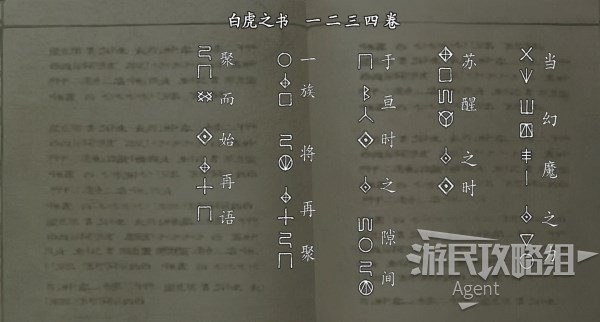 白虎之书 一二三四卷
当幻魔之
苏醒之时
于亘时之隙间
一族将再聚
聚而始再语
游民攻略组
Agent